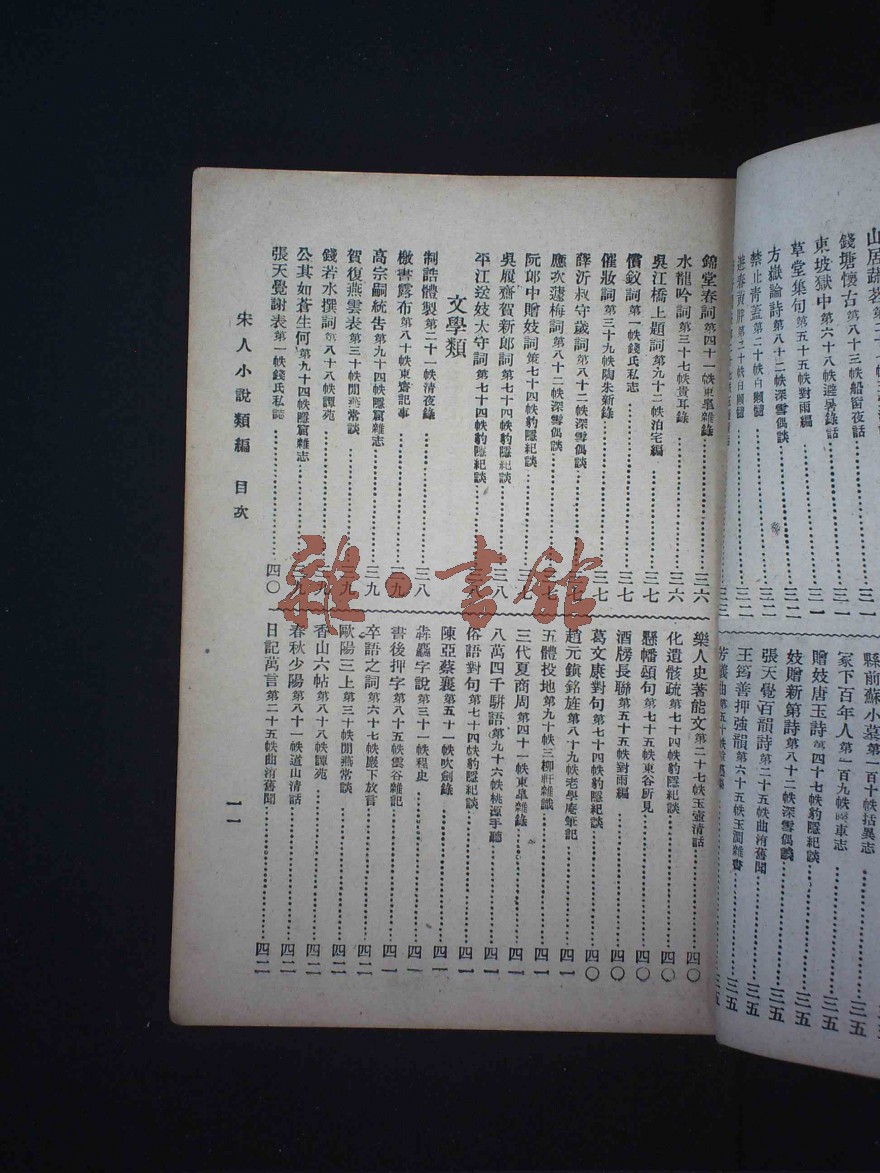 錢塘懷古第八十三帙船窗夜話
東坡獄中第六十八帙避暑錄話
草堂集句第五十五帙對雨編
方嶽論詩第八十二帙深雪偶談
禁止青蓋第二十帙白獺髓
縣前蘇小墓第一百十帙括異志
冢下百年人第一百九帙
贈妓唐玉詩第四十七帙豹隱紀談
妓贈新第詩第八十二帙深雪偶談
張天覺百韻詩第二十五帙曲洧舊聞
王筠善押強韻第六十五帙玉澗雜書
錦堂春詞第四十一帙東臯雜錄 三六
水龍吟詞第三十七帙貴耳錄 三六
吳江橋上題詞第九十二帙泊宅編 三七
償釵詞第一帙錢氏私志 三七
催妝詞第三十九帙陶朱新錄 三七
薛沂叔守歲詞第八十二帙深雪偶談
應次蘧梅詞第八十二帙深雪偶談
阮郎中贈妓詞第七十四帙豹隱紀談
吳履齋賀新郎詞第七十四帙豹隱紀談 三八
平江送妓太守詞第七十四帙豹隱紀談
文學類
制誥體製第二十一帙清夜錄 三八
檄書露布第八十帙東齋記事 三九
高宗嗣統告第九十四帙隱窟雜志 三九
賀復燕雲表第三十帙閒燕常談 三九
錢若水撰詞第八十八帙譚苑
公其如蒼生何第九十四帙隱窟雜志
張天覺謝表第一帙錢氏私誌 四〇
樂人史著能文第二十七帙玉壺清話 四〇
化遺骸疏第七十四帙豹隱紀談 四〇
懸幡頌句第七十五帙東谷所見 四〇
酒房長聯第五十五帙對雨編 四〇
葛文康對句第七十四帙豹隱紀談 四〇
趙元鎮銘旌第八十九帙老學庵筆記 四一
五體投地第九十帙三柳軒雜識 四一
三代夏商周第四十一帙東臯雜錄 四一
八萬四千駢語第九十六帙桃源手聽 四一
俗語對句第七十四帙豹隱紀談 四一
陳亞蔡襄第五十一帙吹劍錄 四一
犇麤字說第三十一帙程史 四一
書後押字第八十五帙雲谷雜記 四一
卒語之詞第六十七帙巖下放言 四二
歐陽三上第三十帙閒燕常談 四二
香山六帖第八十八帙譚苑 四二
春秋少陽第八十一帙道山清話 四二
日記萬言第二十五帙曲洧舊聞 四二
宋人小說類編 目次 一一
雜·書館